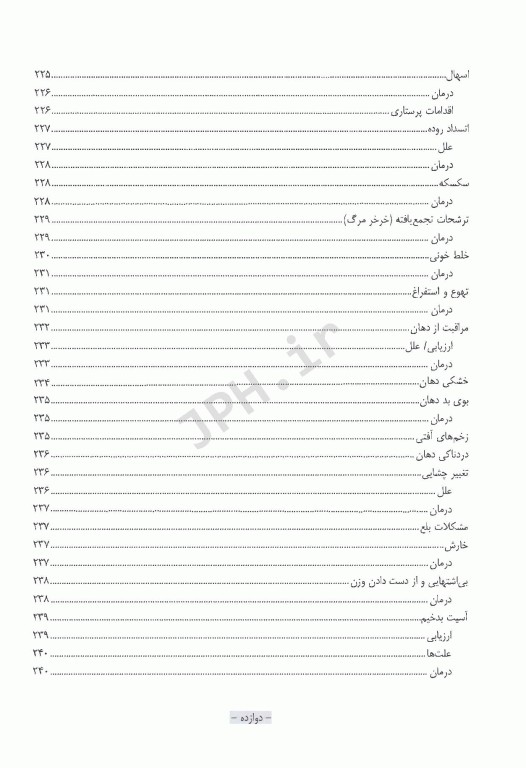 اسهال ۲۲۵
درمان ۲۲۶
اقدامات پرستاری ۲۲۶
انسداد روده ۲۲۷
علل ۲۲۷
درمان ۲۲۸
سکسکه ۲۲۸
درمان ۲۲۸
ترشحات تجمع‌یافته (خرخر مرگ) ۲۲۹
درمان ۲۲۹
خلط خونی ۲۳۰
درمان ۲۳۱
تهوع و استفراغ ۲۳۱
درمان ۲۳۱
مراقبت از دهان ۲۳۲
ارزیابی/ علل ۲۳۳
درمان ۲۳۳
خشکی دهان ۲۳۴
بوی بد دهان ۲۳۵
درمان ۲۳۵
زخم‌های آفتی ۲۳۵
دردناکی دهان ۲۳۶
تغییر چشایی ۲۳۶
علل ۲۳۶
درمان ۲۳۷
مشکلات بلع ۲۳۷
خارش ۲۳۷
درمان ۲۳۷
بی‌اشتهایی و از دست دادن وزن ۲۳۸
درمان ۲۳۸
آسیت بدخیم ۲۳۹
ارزیابی ۲۳۹
علت‌ها ۲۴۰
درمان ۲۴۰
– دوازده –
JPH.ir